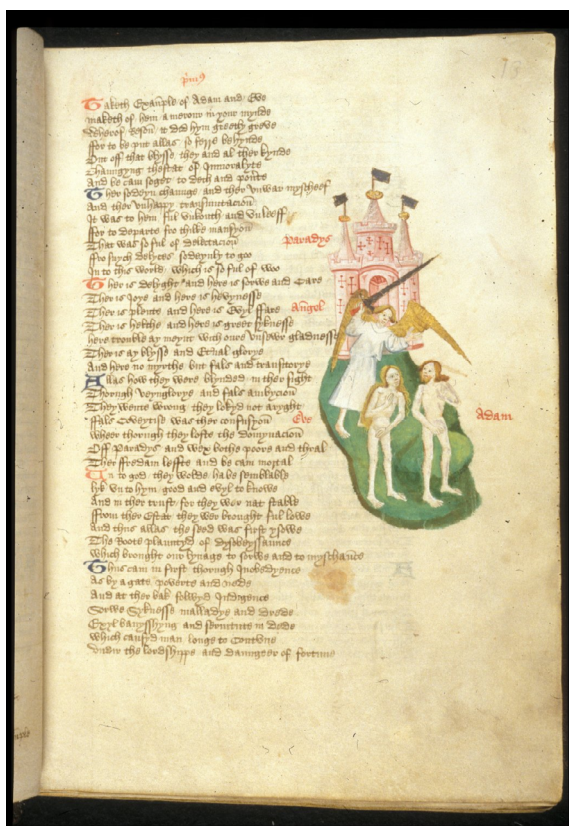 pim9
13
Taketh Exaumple of Adam and Eve
maketh of hem a merour in your mynde
Wherof reson it ded hym gretly greve
ffor to be put allas so ferre behynde
Out off that blysse they and al ther kynde
Chaungyng thestat of Inmoralyte
And be cam soget to deth and povte
Ther sodeyn chaunge and ther vnwar myscheef
And ther vnhappy transmutacion
It was to hem ful vnkouth and vnleeff
ffor to departe fro thilke mansyon
That was so ful of delectacion
ffro suych delytes sodeynly to goo
In to this world which is so ful of woo
paradys
Ther is delyght and here is sorwe and Care
Ther is Joye and here is hevynesse
Ther is plente and here is Evyl ffare
Angel
Ther is helthe and here is greet syknesse
here trouble ay meynt with oure vnsewr gladnesse
Ther is ay blysse and Eternal glorye
And here no myrthe but fals and transitorye
Allas how they were blynded in ther sight
Thorugh veynglorye and fals ambycion
They wente wrong they lokyd not aryght
ffals Coveytise was ther confusyon
Eve
Adam
wheer thorugh they loste the domynacion
Off Paradys and wex bothe poore and thral
Ther ffredam loste and be cam mortal
Un to god they wolde have semblable
lyk vn to hym good and evyl to knowe
And in ther trust for they wer nat stable
ffrom ther Estat they wer brought ful lowe
And thus allas the seed was first ysowe
The Roote plauntyd of dysobeyssaunce
which brought our lynage to sorwe and to myschaunce
Thus cam in first thorugh Inobedyence
As by a gate poverte and nede
And at ther bak folwyd Indigence
Sorwe Syknesse malladye and drede
Exyl banysshyng and servitute in dede
which causyd man longe to Contune
vndir the lordshippe and daungeer of fortune